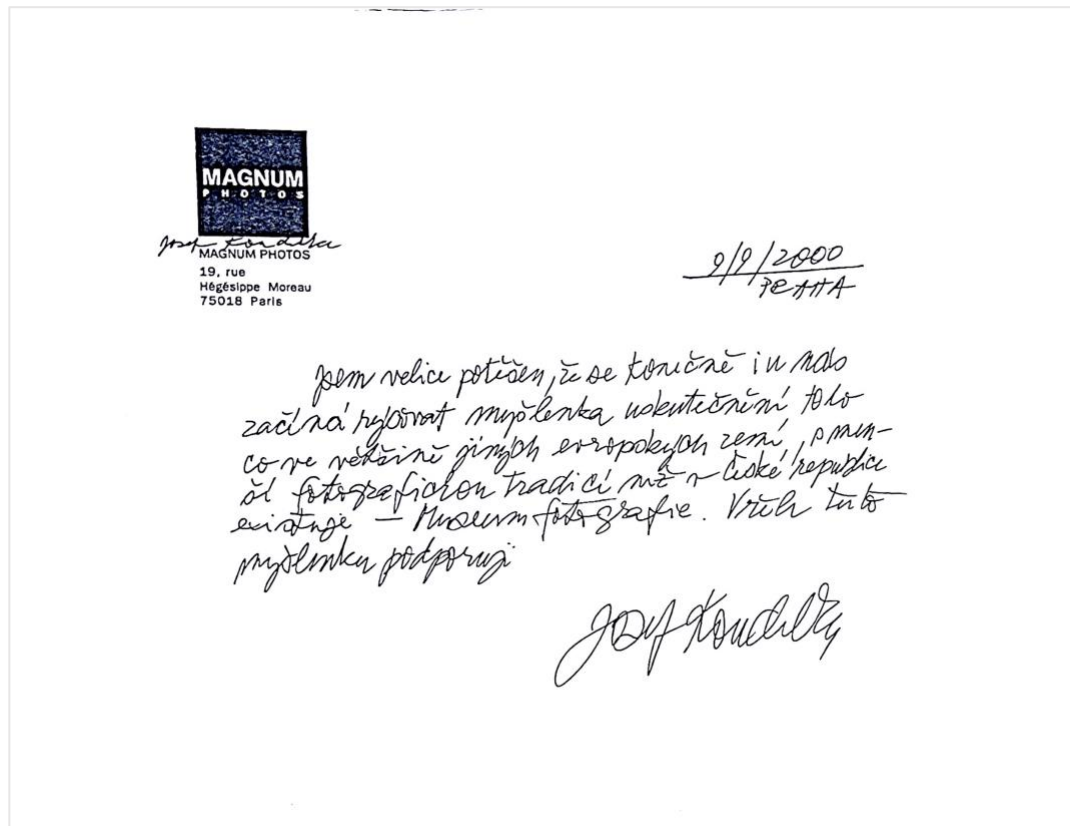 MAGNUM
PHOTOS
Josef Koudelka
MAGNUM PHOTOS
19, rue
Hégésippe Moreau
75018 Paris
9/9/2000
PRAHA
Jsem velice potěšen, že se konečně i u nás
začíná rýsovat myšlenka uskutečnění toho
co ve většině jiných evropských zemí, s men-
ší fotografickou tradicí než v České republice
existuje – Museum fotografie. Vřele tuto
myšlenku podporuji
Josef Koudelka